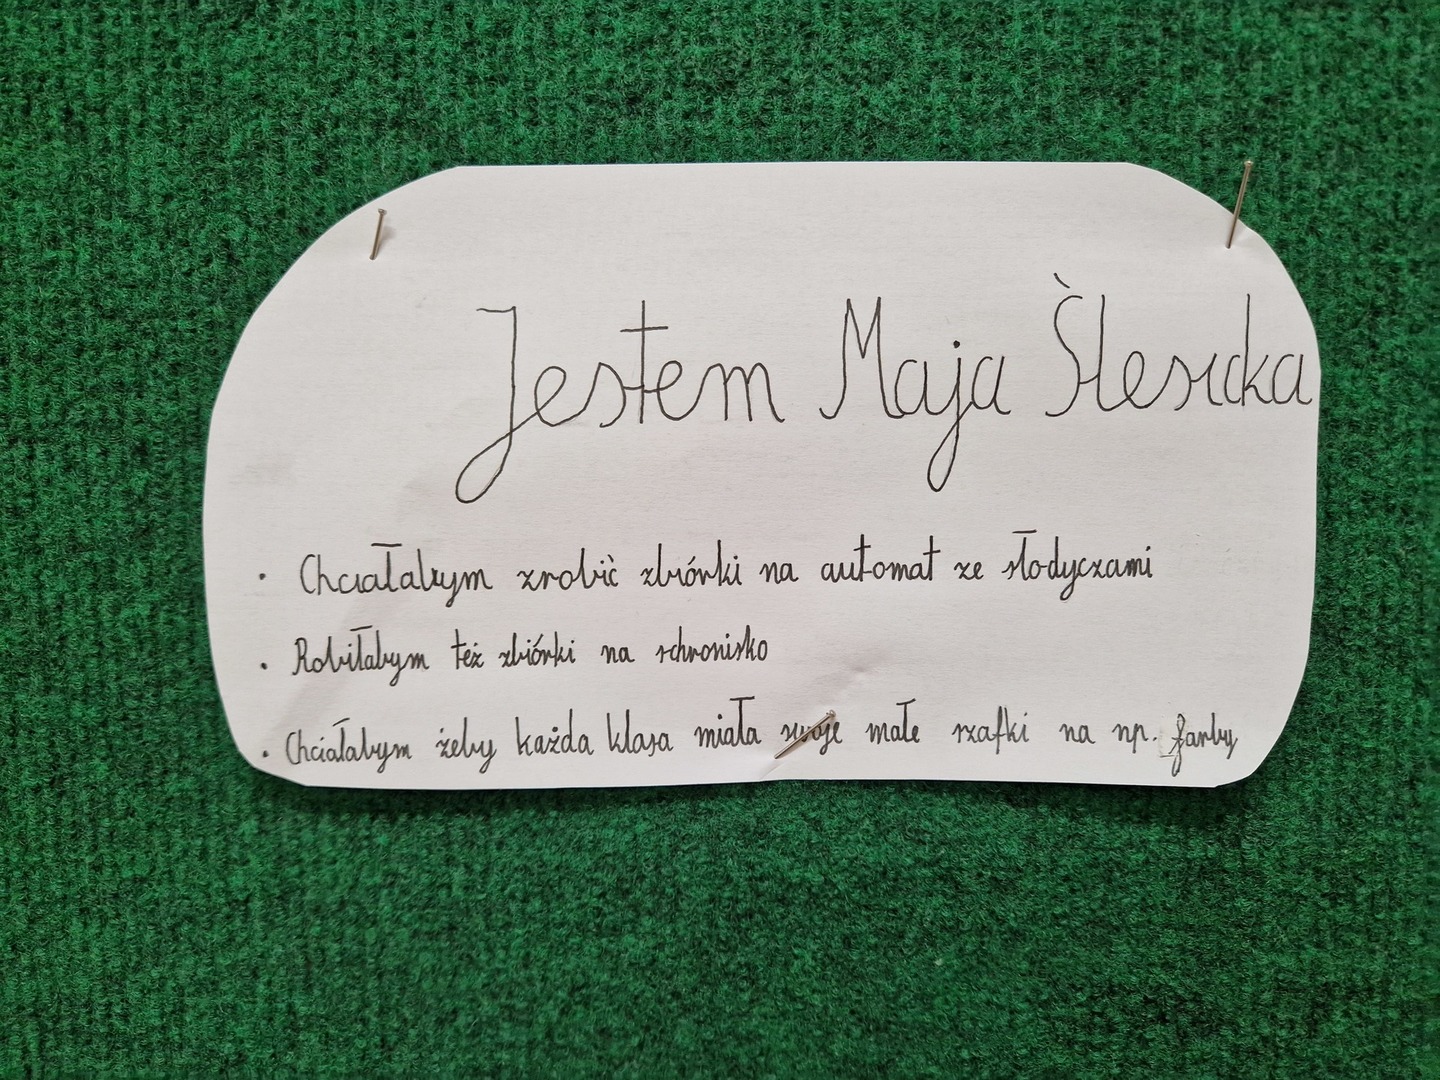 Jestem Maja Ślesicka
• Chciałabym zrobić zbiórki na automat ze słodyczami
• Robiłabym też zbiórki na schronisko
• Chciałabym żeby każda klasa miała swoje małe szafki na np. farby